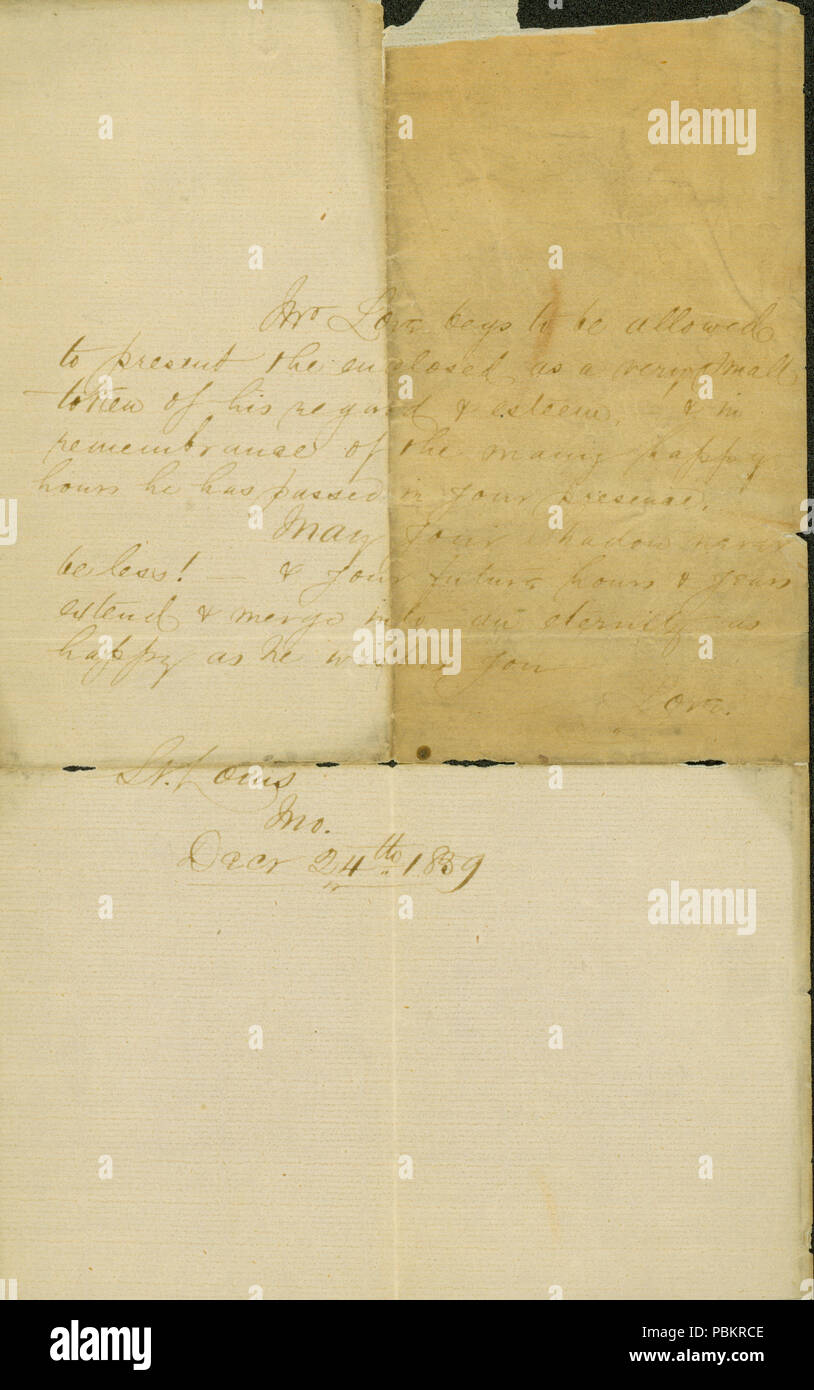 Mr. Love begs to be allowed
to present the enclosed as a very small
token of his regard & esteem, & in
remembrance of the many happy
hours he has passed in your presence.
May your shadow never
be less! — & your future hours & years
extend & merge into an eternity as
happy as he wishes you
Love.
St. Louis
Mo.
Decr 24th 1839
alamy
alamy
Image ID: PBKRCE
www.alamy.com